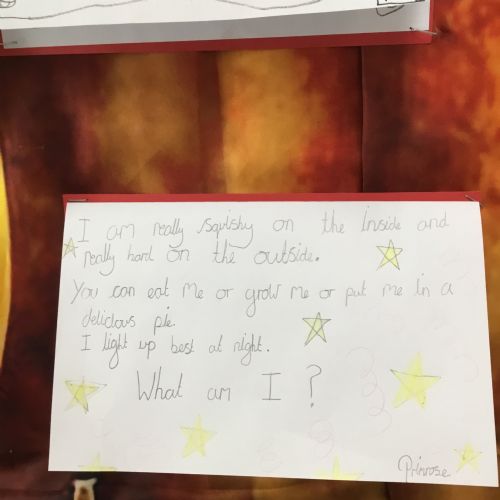 I am really squishy on the inside and
really hard on the outside.
You can eat me or grow me or put me in a
delicious pie.
I light up best at night.
What am I ?
Primrose